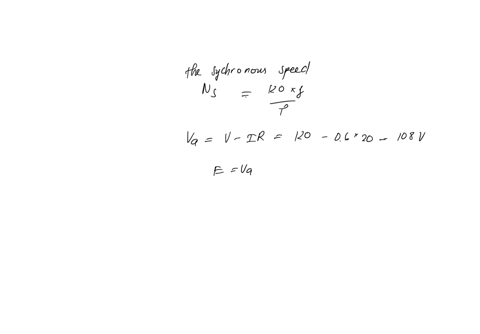 the sychronous speed
Ns = 120 * f
P
Va = V - IR = 120 - 0.6 * 20 - 108 V
E = Va